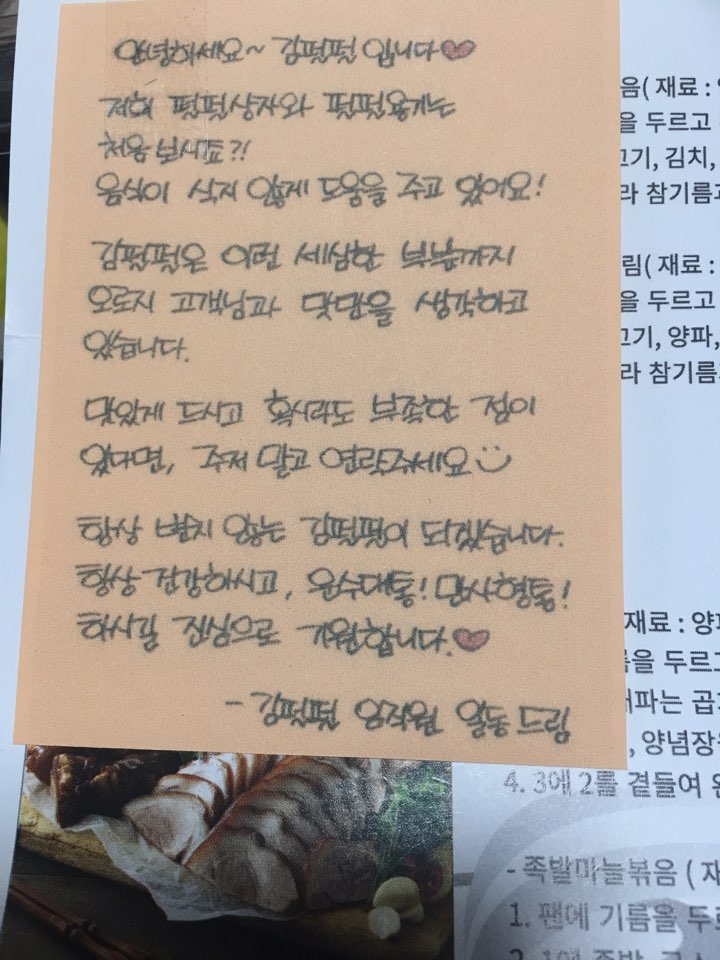 안녕하세요~ 김펄펄 입니다♥
저희 펄펄상자와 펄펄용기는
처음 보시죠?!
음식이 식지 않게 도움을 주고 있어요!
김펄펄은 이런 세심한 부분까지
오로지 고객님과 맛만을 생각하고
있습니다.
맛있게 드시고 혹시라도 부족한 점이
있다면, 주저 말고 연락주세요
항상 변치 않는 김펄펄이 되겠습니다.
항상 건강하시고, 운수대통! 만사형통!
하시길 진심으로 기원합니다.♥
- 김펄펄 임직원 일동 드림
음( 재료 :
을 두르고
고기, 김치,
라 참기름
림( 재료 :
을 두르고
고기, 양파,
라 참기름
재료 : 양파
을 두르고
대파는 곱
, 양념장
4. 3에 2를 곁들여
- 족발마늘볶음 ( 재
1. 팬에 기름을 두르